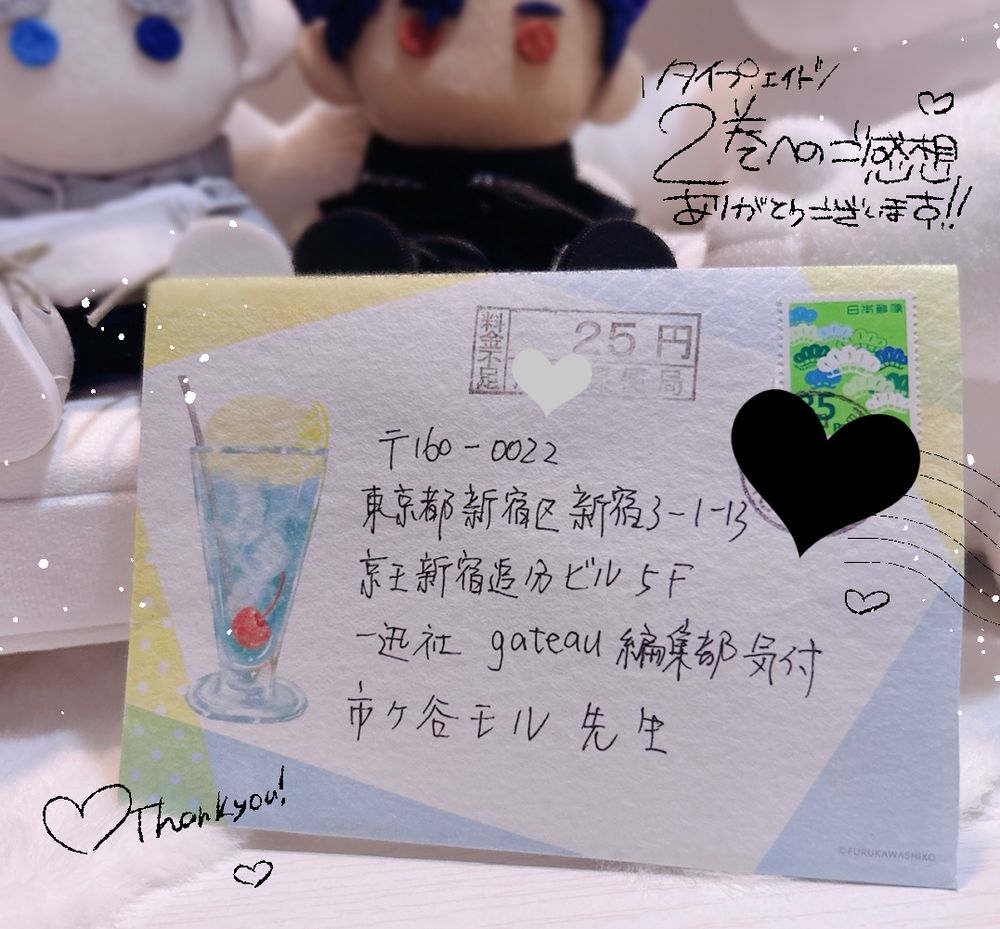 タイプエイド
2巻へのご感想
ありがとうございます!!
料金不足
25円
局
日本郵便
〒160-0022
東京都新宿区新宿3-1-13
京王新宿追分ビル5F
一迅社 gateau編集部気付
市ヶ谷モル 先生
Thank you!
©FURUKAWASHIKO